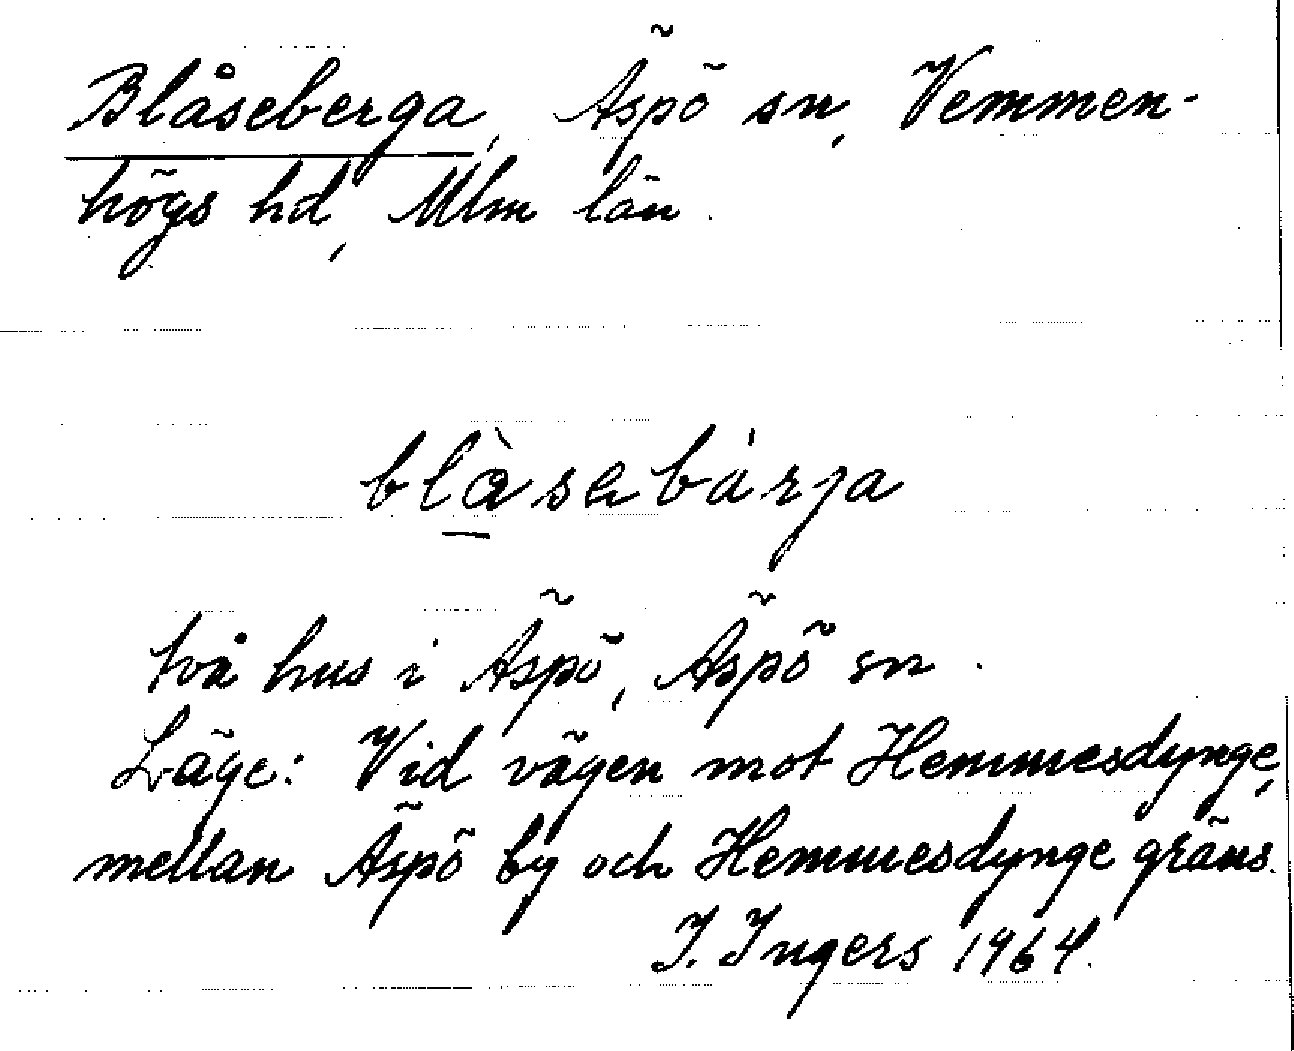 Blåseberga, Äspö sn, Vemmen-
högs hd, Mlm län.
blàsebárja
två hus i Äspö, Äspö sn.
Läge: Vid vägen mot Hemmesdynge,
mellan Äspö by och Hemmesdynge gräns.
I. Ingers 1964.